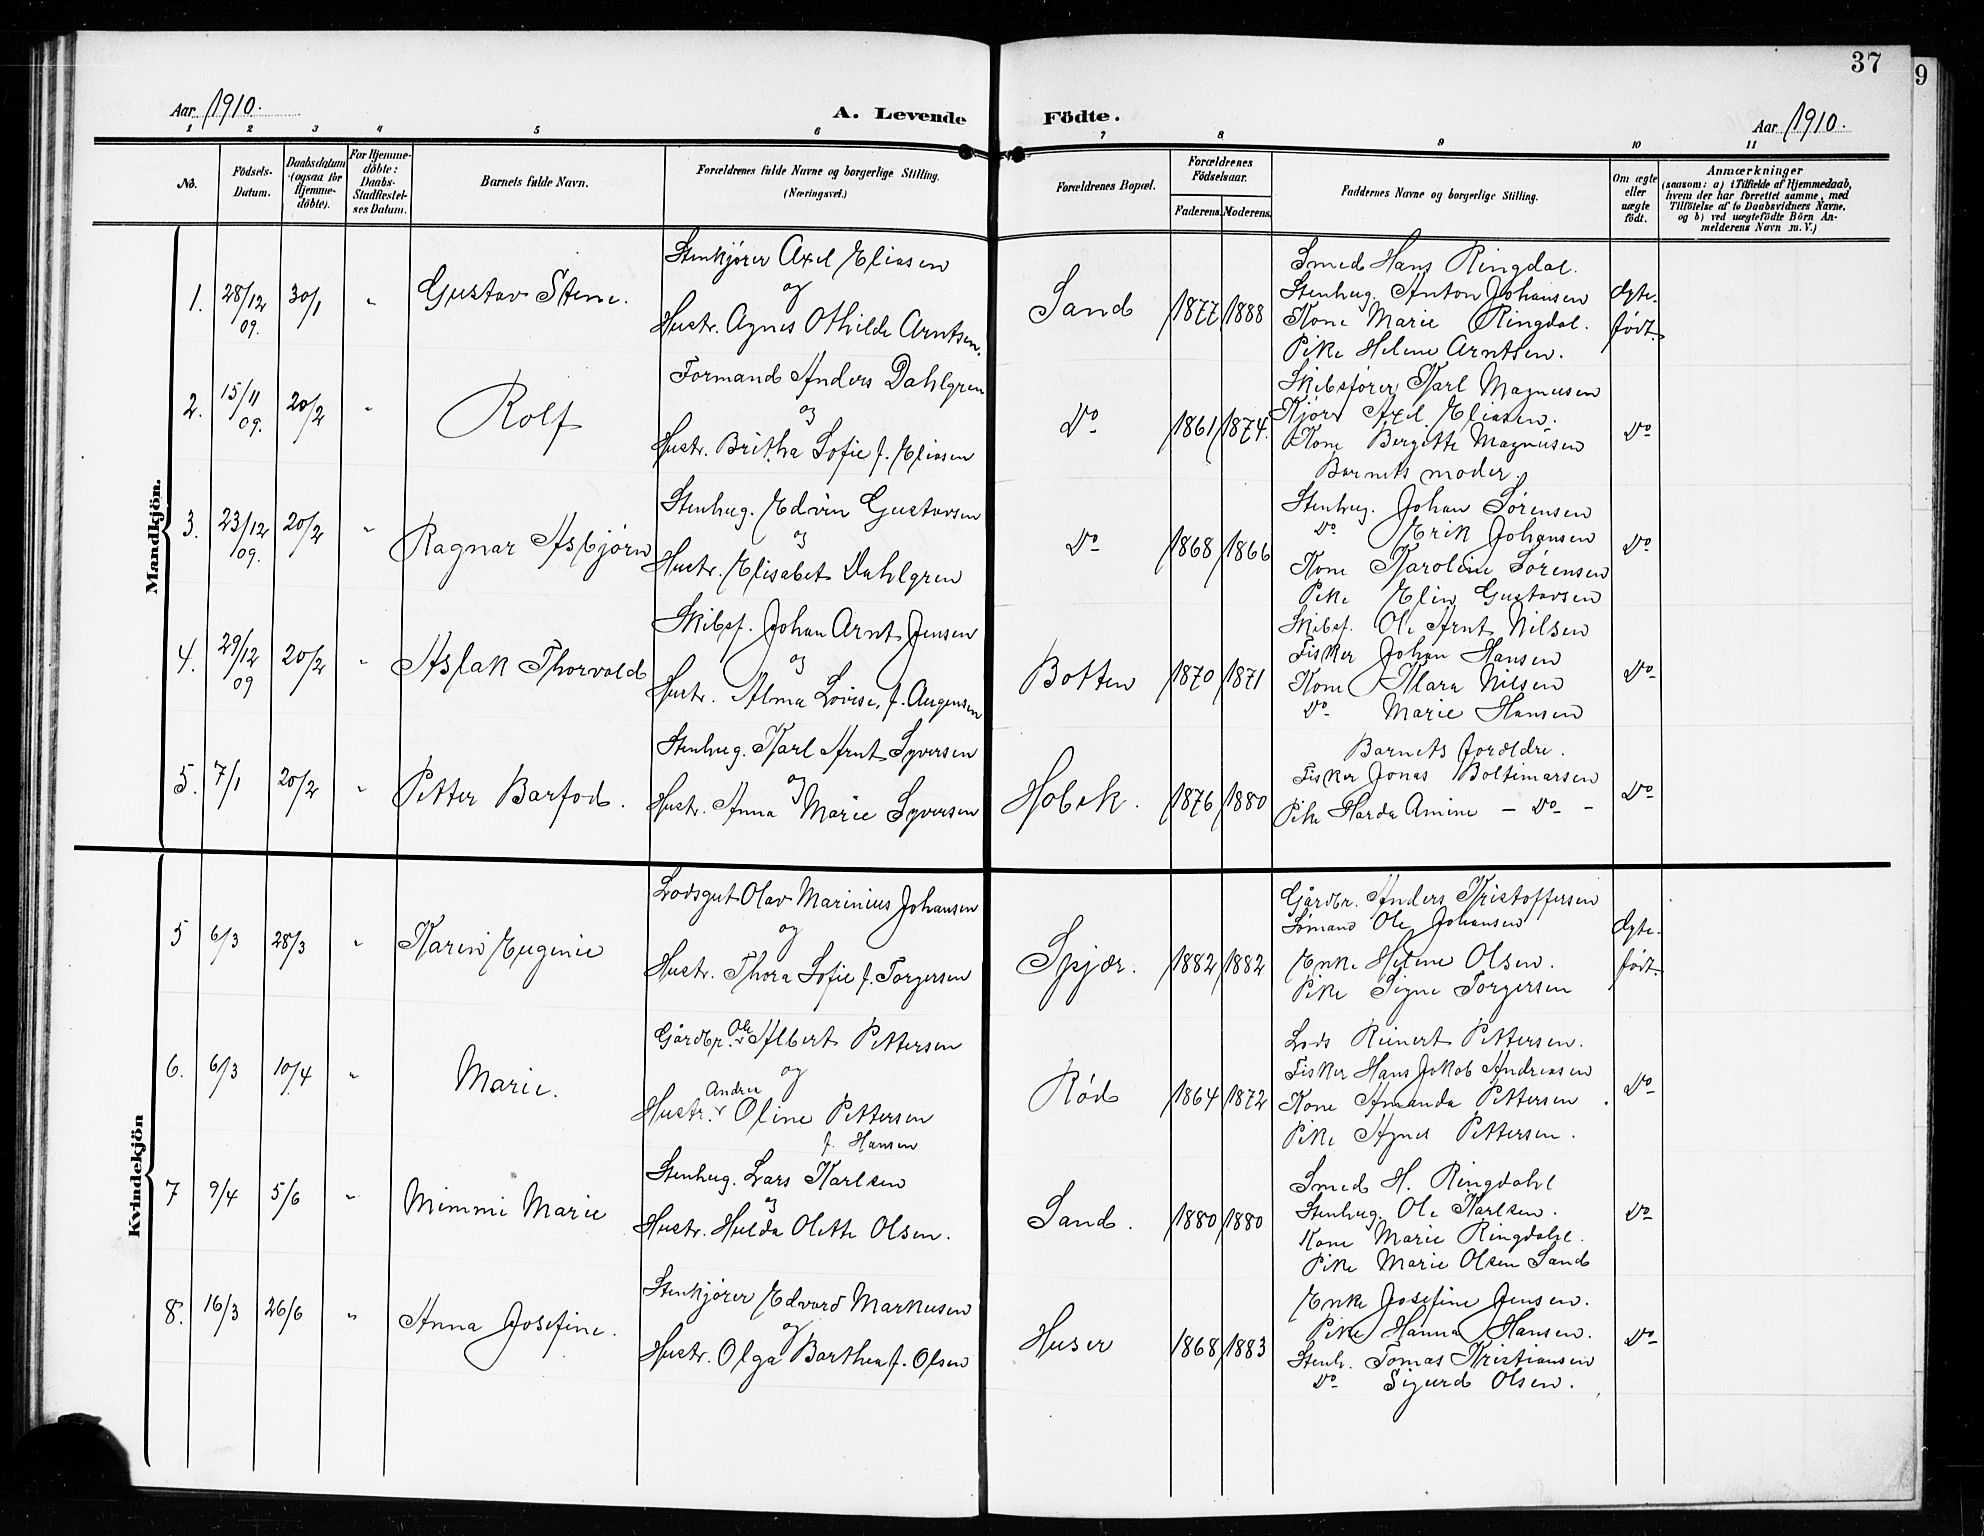 37
9
Aar 1910.
A. Levende Födte.
Aar 1910.
1 2 3 4 5 6 7 8 9 10 11
No.
Födsels-
Datum.
Daabsdatum
(ogsaa för
Hjemme-
döbte).
For Hjemme-
döbte:
Daabs-
Stadfæstel-
ses Datum.
Barnets fulde Navn.
Forældrenes fulde Navne og borgerlige Stilling.
(Næringsvei.)
Forældrenes Bopæl.
Forældrenes
Födselsaar.
Faderens. Moderens.
Faddernes Navne og borgerlige Stilling.
Om ægte
eller
uægte
födt.
Anmærkninger
(saasom: a) i Tilfælde af Hjemmedaab,
hvem der har forrettet samme, med
Tilföielse af to Daabsvidners Navne,
og b) ved uægtefödte Börn An-
melderens Navn m. V.)
Mandkjön.
1. 28/12 09. 30/1 " Gustav Stene.
Stenkjører Axel Eliasen
og
Hustr. Agnes Othilde Arntsen.
Sand 1877 1888
Smed Hans Ringdal.
Stenhug. Anton Johansen
Kone Marie Ringdal.
Pike Helene Arntsen.
Ægte-
født.
2. 15/11 09. 20/2 " Rolf
Formand Anders Dahlgren
og
Hustr. Britha Sofie f. Eliasen
Do 1861 1874.
Skibsfører Karl Magnusen
Kjører Axel Eliasen.
Kone Bergitte Magnusen
Barnets moder.
Do
3. 23/12 09. 20/2 " Ragnar Asbjørn
Stenhug. Edvin Gustavsen
og
Hustr. Elisabet Dahlgren
Do 1868 1866
Stenhug. Johan Sørensen
Do Erik Johansen
Kone Karoline Sørensen
Pike Elin Gustavsen
Do
4. 29/12 09 20/2 " Aslak Thorvald
Skibsf. Johan Arnt Jensen
og
Hustr. Alma Lovise, f. Augensen
Botten 1870 1871
Skibsf. Ole Arnt Nilsen
Fisker Johan Hansen
Kone Klara Nilsen
Do Marie Hansen
Do
5. 7/1 20/2 " Petter Barfod.
Stenhug. Karl Arnt Syversen
og
Hustr. Anna Marie Syversen
Hobæk. 1876 1880
Barnets forældre.
Fisker Jonas Boltimarsen
Pike Harda Amine - Do -
Do
Kvindekjön
5 6/3 28/3 " Karin Eugenie
Lodsgut Olav Marinius Johansen
og
Hustr. Thora Sofie f. Torgersen
Spjær. 1882 1882
Gårdbr. Anders Kristoffersen
Sømand Ole Johansen
Enke Helene Olsen.
Pike Signe Torgersen
Ægte-
født.
6. 6/3 10/4 " Marie.
Gårdbr. Ole Albert Pettersen
og
Hustr. Andrea Oline Pettersen
f. Hansen
Rød 1864 1872
Lods Reinert Pettersen.
Fisker Hans Jakob Andreasen
Kone Amanda Pettersen.
Pike Agnes Pettersen.
Do
7 9/4 5/6 " Mimmi Marie
Stenhug. Lars Karlsen
og
Hustr. Hulda Olette Olsen.
Sand. 1880 1880
Smed H. Ringdahl
Stenhug. Ole Karlsen.
Kone Marie Ringdahl.
Pike Marie Olsen Sand
Do
8. 16/3 26/6 " Anna Josefine.
Stenkjører Edvard Markusen
og
Hustr. Olga Barthea f. Olsen
Huser 1868 1883
Enke Josefine Jensen.
Pike Hanna Hansen.
Stenh. Tomas Kristiansen
Do Sigurd Olsen.
Do